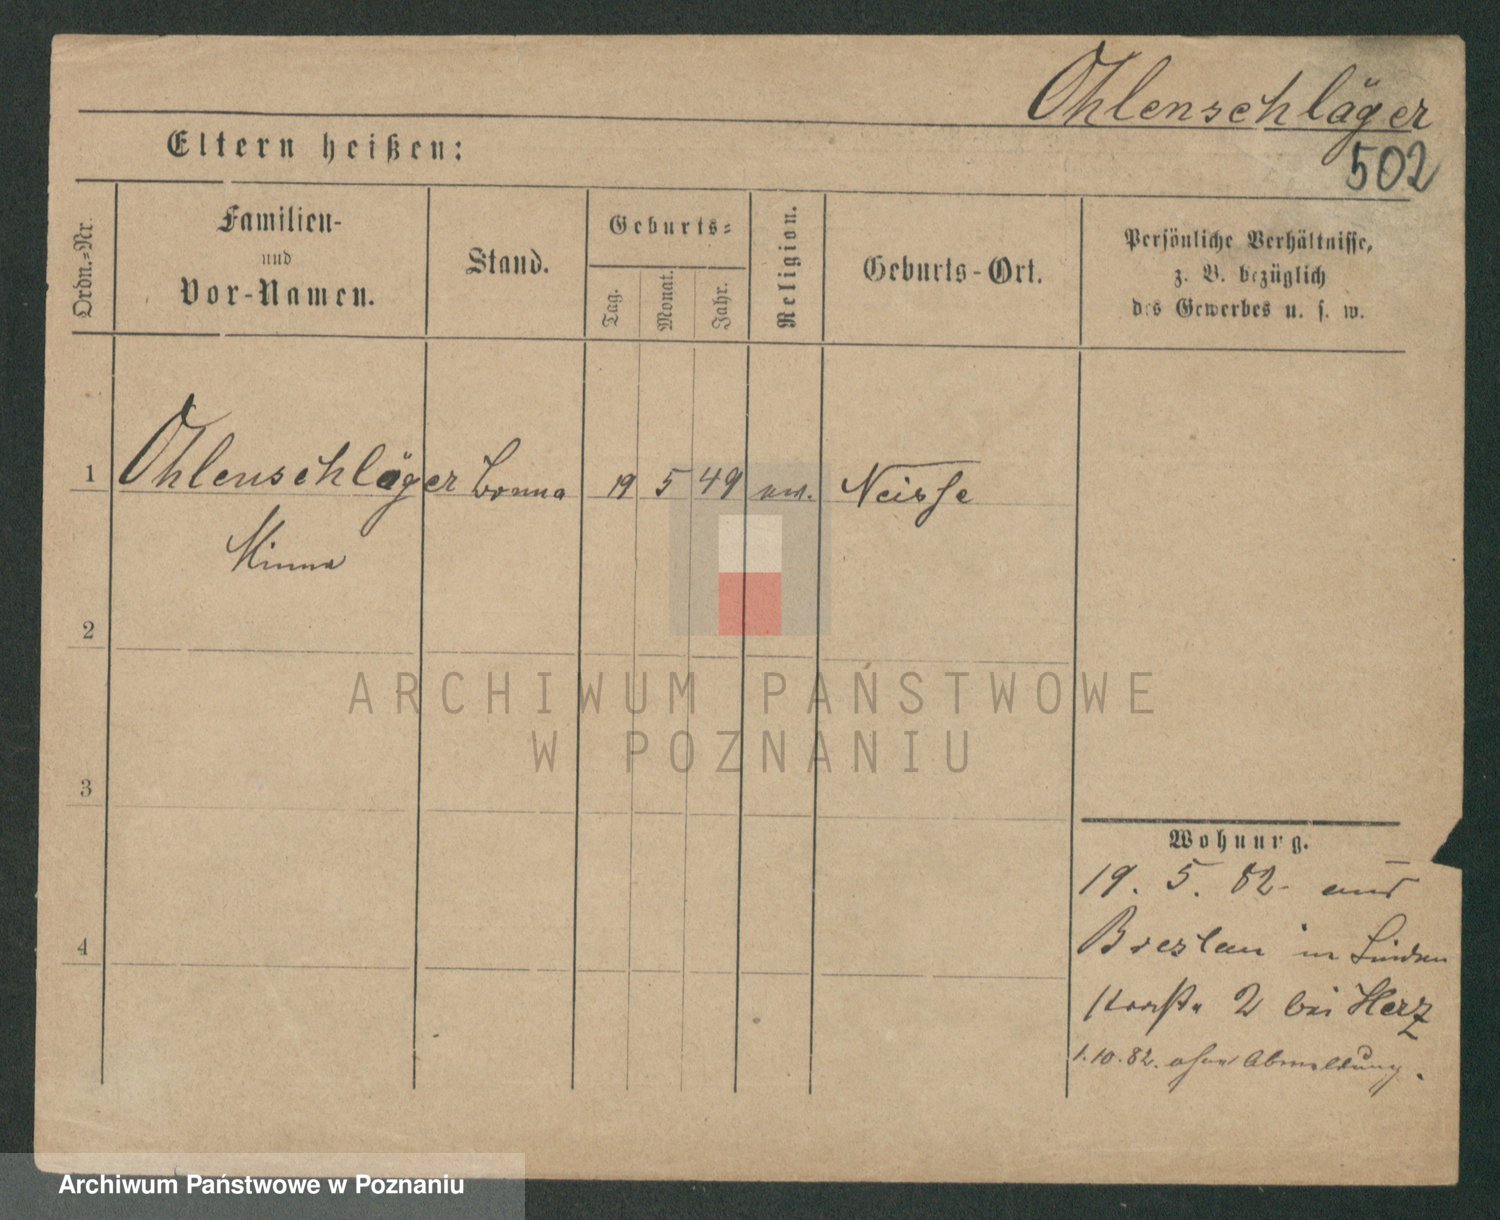 Ohlenschläger
502
Eltern heißen:
Ordn.=Nr.
Familien-
und
Vor-Namen.
Stand.
Geburts=
Tag.
Monat.
Jahr.
Religion.
Geburts-Ort.
Persönliche Verhältnisse,
z. B. bezüglich
des Gewerbes u. s. w.
1 Ohlenschläger Bonna 19 5 49 ev. Neisse
Minna
2
3
4
Wohnung.
19. 5. 82. aus
Breslau in Linden
straße 2 bei Herz
1.10.82. ohne Abmeldung.
ARCHIWUM PAŃSTWOWE
W POZNANIU
Archiwum Państwowe w Poznaniu